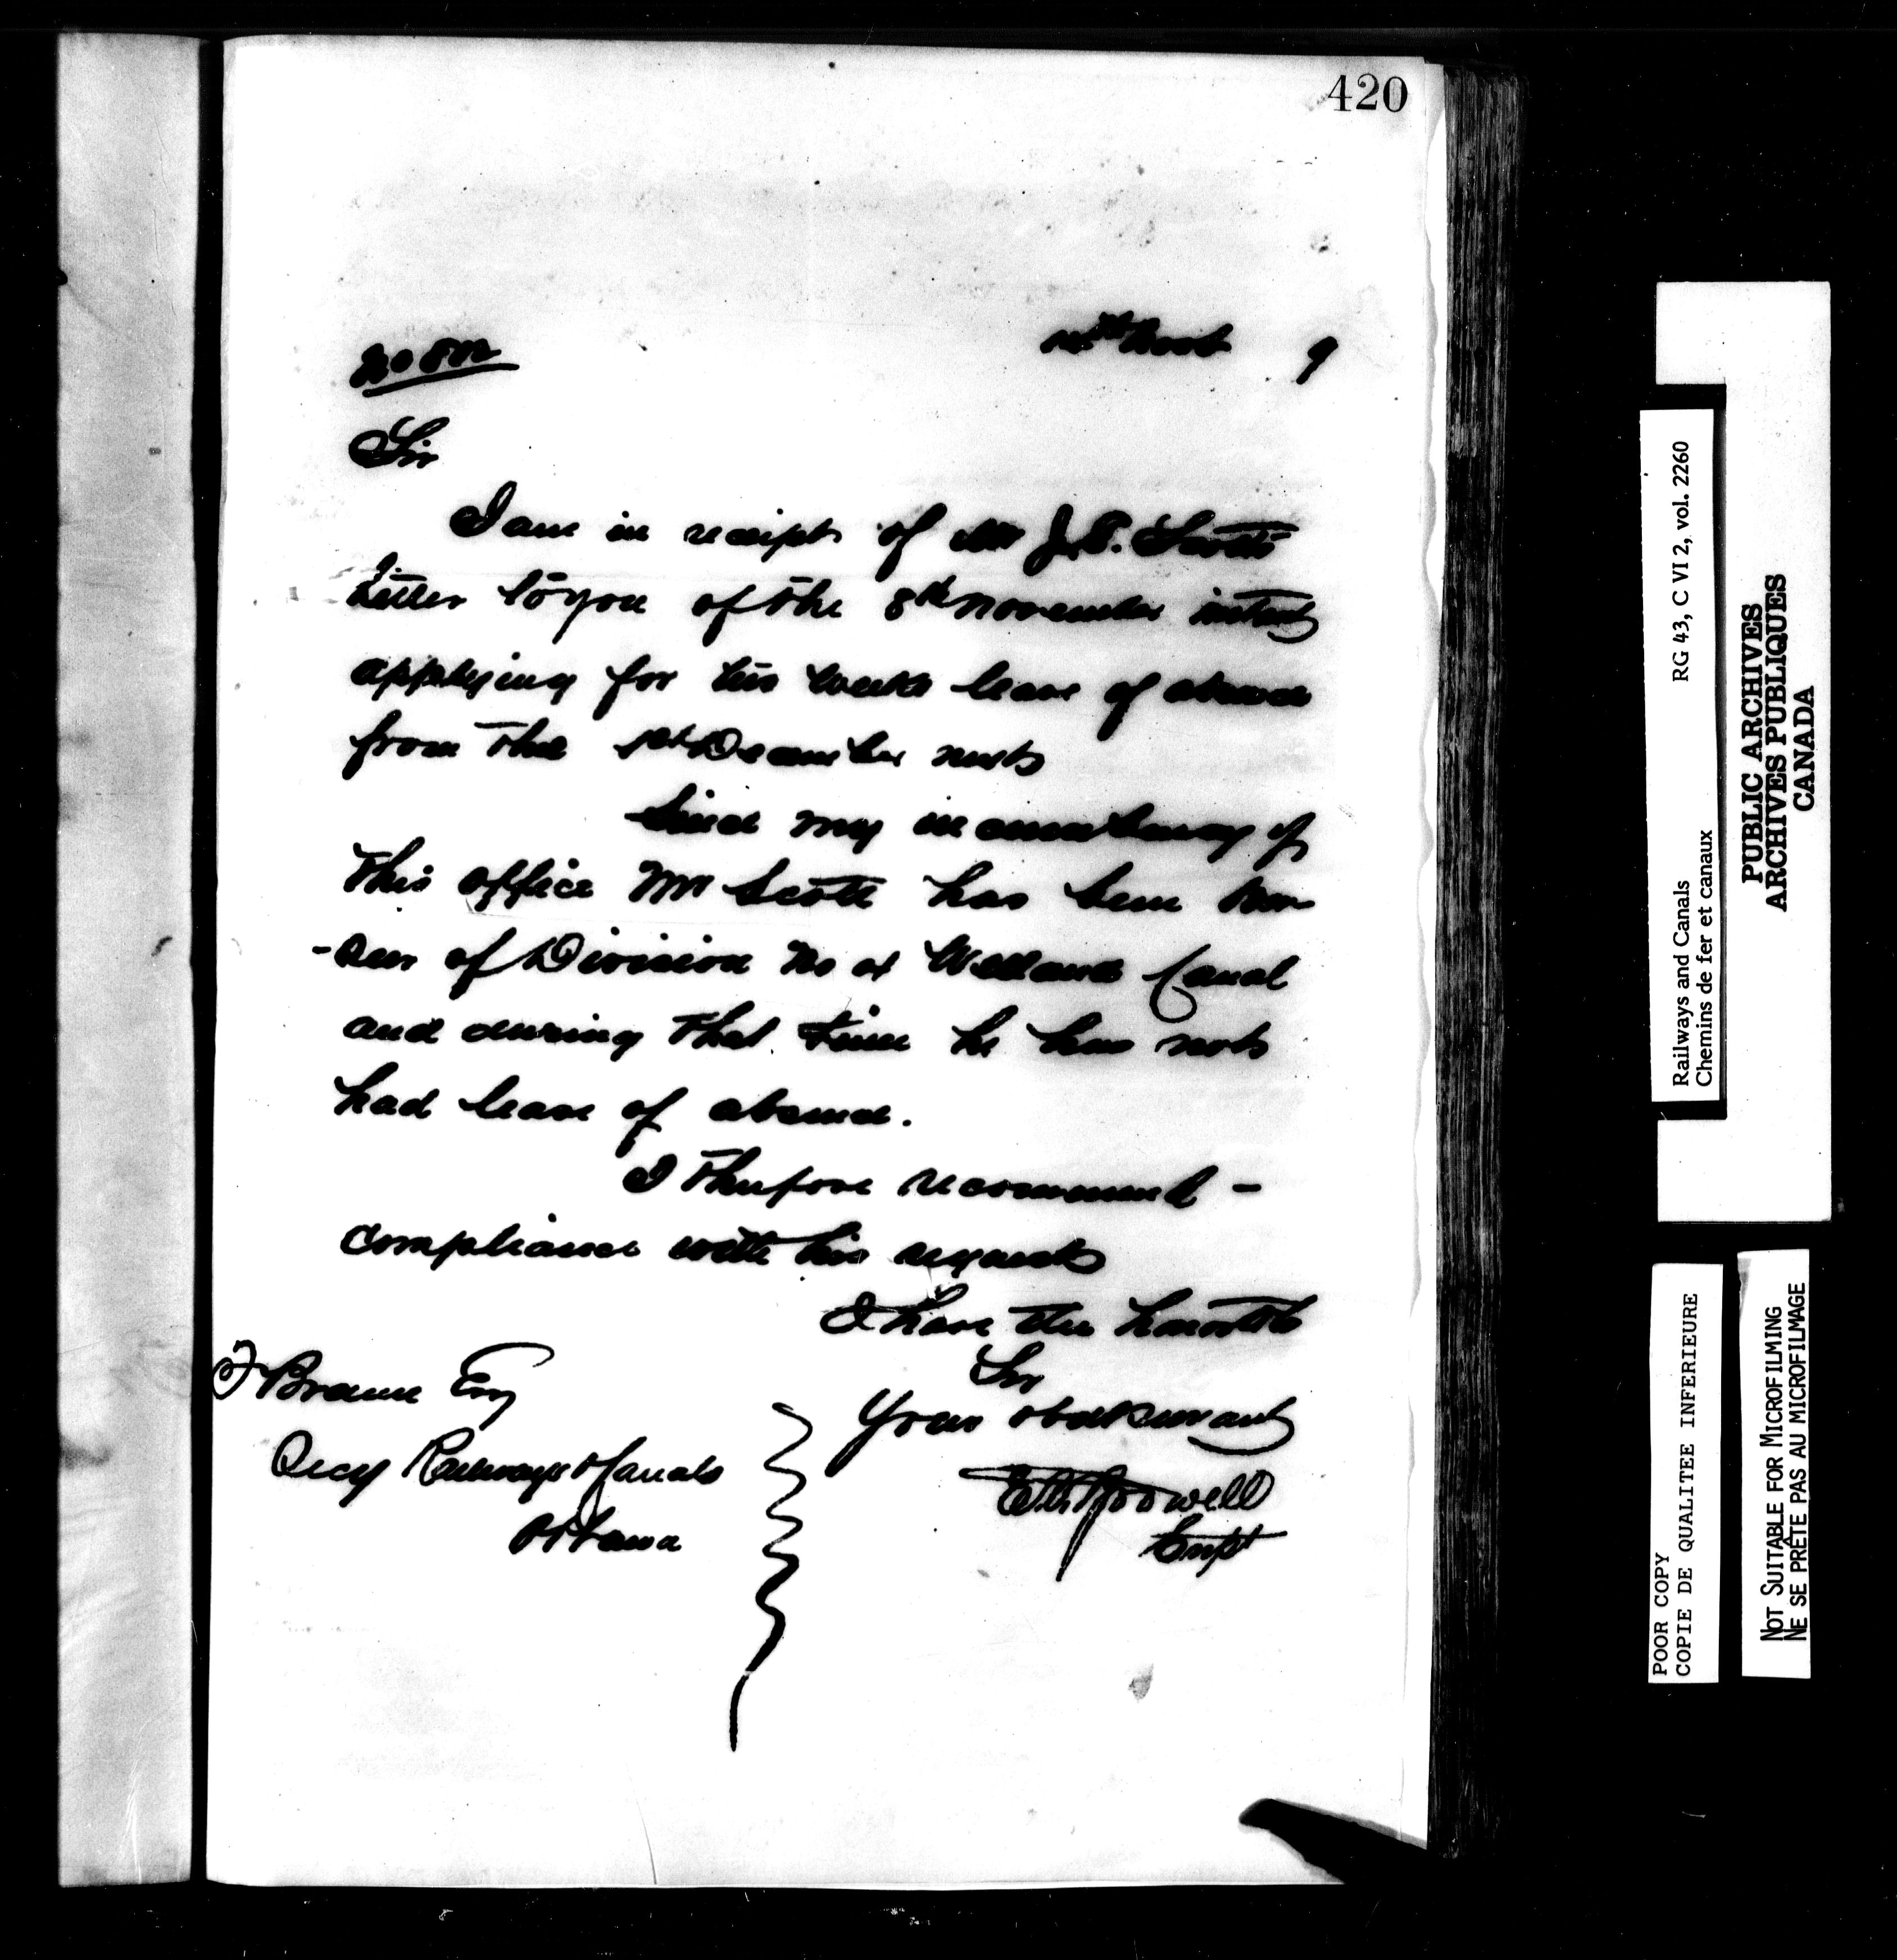 420
Sir
I am in receipt of Mr J.P. Scott's
Letter to you of the 8th November instant
applying for weeks leave of absence
from the 1st December next
Since my incumbency of
this office Mr Scott has been
of Division No Welland Canal
and during that time he has not
had leave of absence.
I Therefore recommend -
compliance with his request
I have the honor to be
Sir
Your obdt Servant
Supt
Braun Esq
Secy Railways & Canals
Ottawa
Railways and Canals RG 43, C VI 2, vol. 2260
Chemins de fer et canaux
PUBLIC ARCHIVES
ARCHIVES PUBLIQUES
CANADA
POOR COPY
COPIE DE QUALITEE INFERIEURE
NOT SUITABLE FOR MICROFILMING
NE SE PRÊTE PAS AU MICROFILMAGE